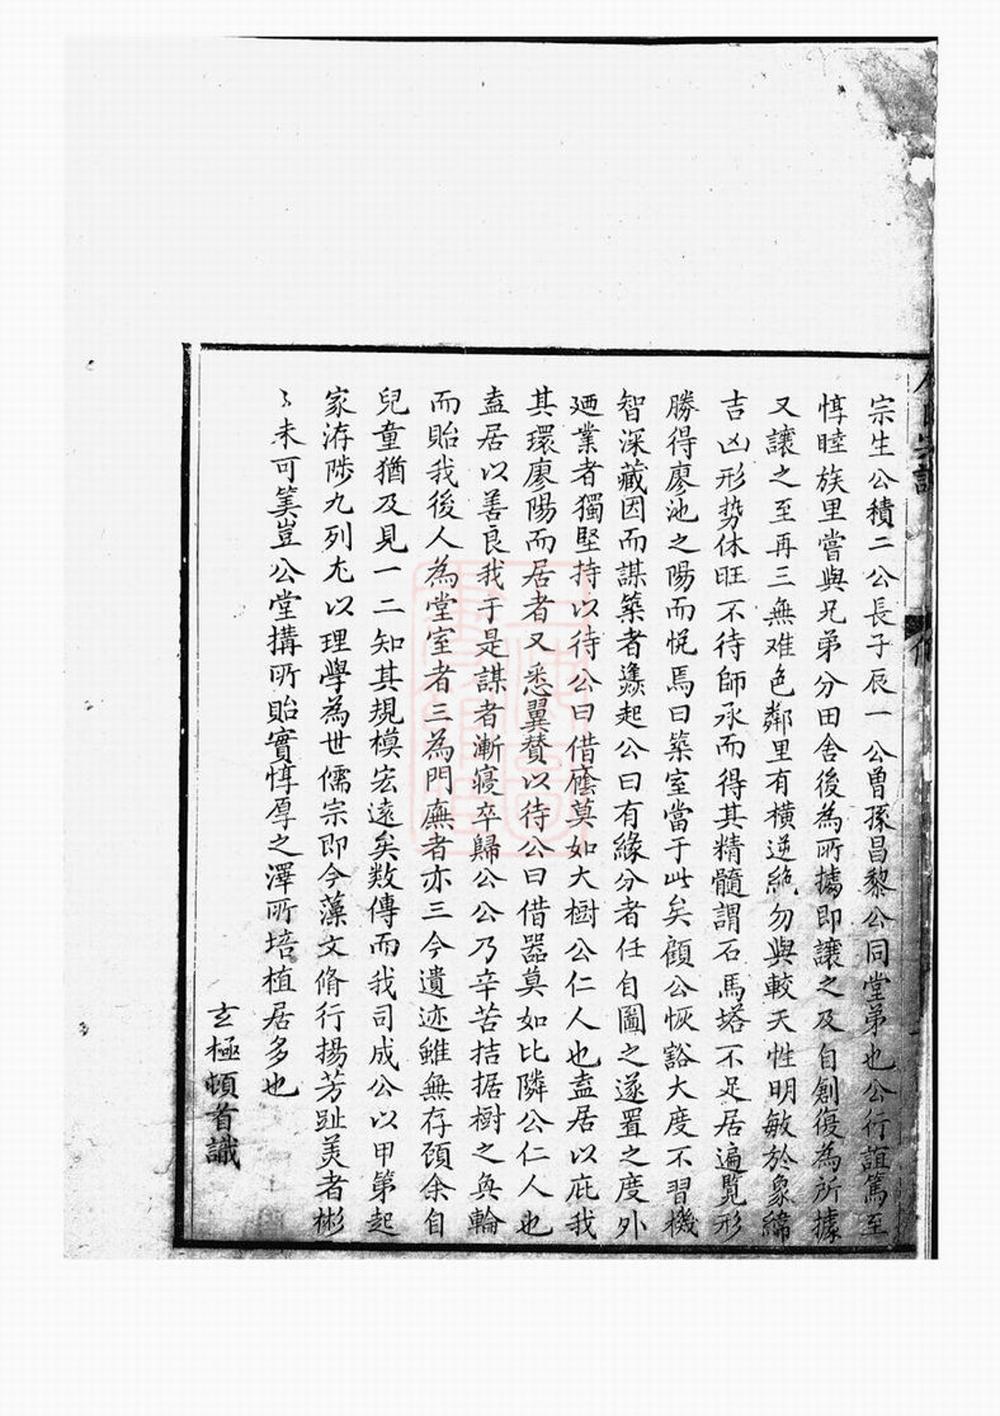 宗生公積二公長子辰一公曾孫昌黎公同堂弟也公行誼篤至
惇睦族里嘗與兄弟分田舍後為所據即讓之及自創復為所據
又讓之至再三無难色鄰里有橫逆絶勿與較天性明敏於象緯
吉凶形势休旺不待師承而得其精髓謂石馬塔不足居遍覽形
勝得廖池之陽而悅焉曰築室當于此矣顧公恢豁大度不習機
智深藏因而謀築者蠭起公曰有緣分者任自圖之遂置之度外
廼業者獨堅持以待公曰借廕莫如大樹公仁人也盍居以庇我
其環廖陽而居者又悉翼贊以待公曰借器莫如比隣公仁人也
盍居以善良我于是謀者漸寢卒歸公公乃辛苦拮据樹之奐輪
而貽我後人為堂室者三為門廡者亦三今遺迹雖無存頋余自
兒童猶及見一二知其規模宏遠矣数傳而我司成公以甲第起
家洊陟九列尤以理學為世儒宗即今藻文脩行揚芳趾美者彬
〻未可筭豈公堂搆所貽實惇厚之澤所培植居多也
玄極頓首識